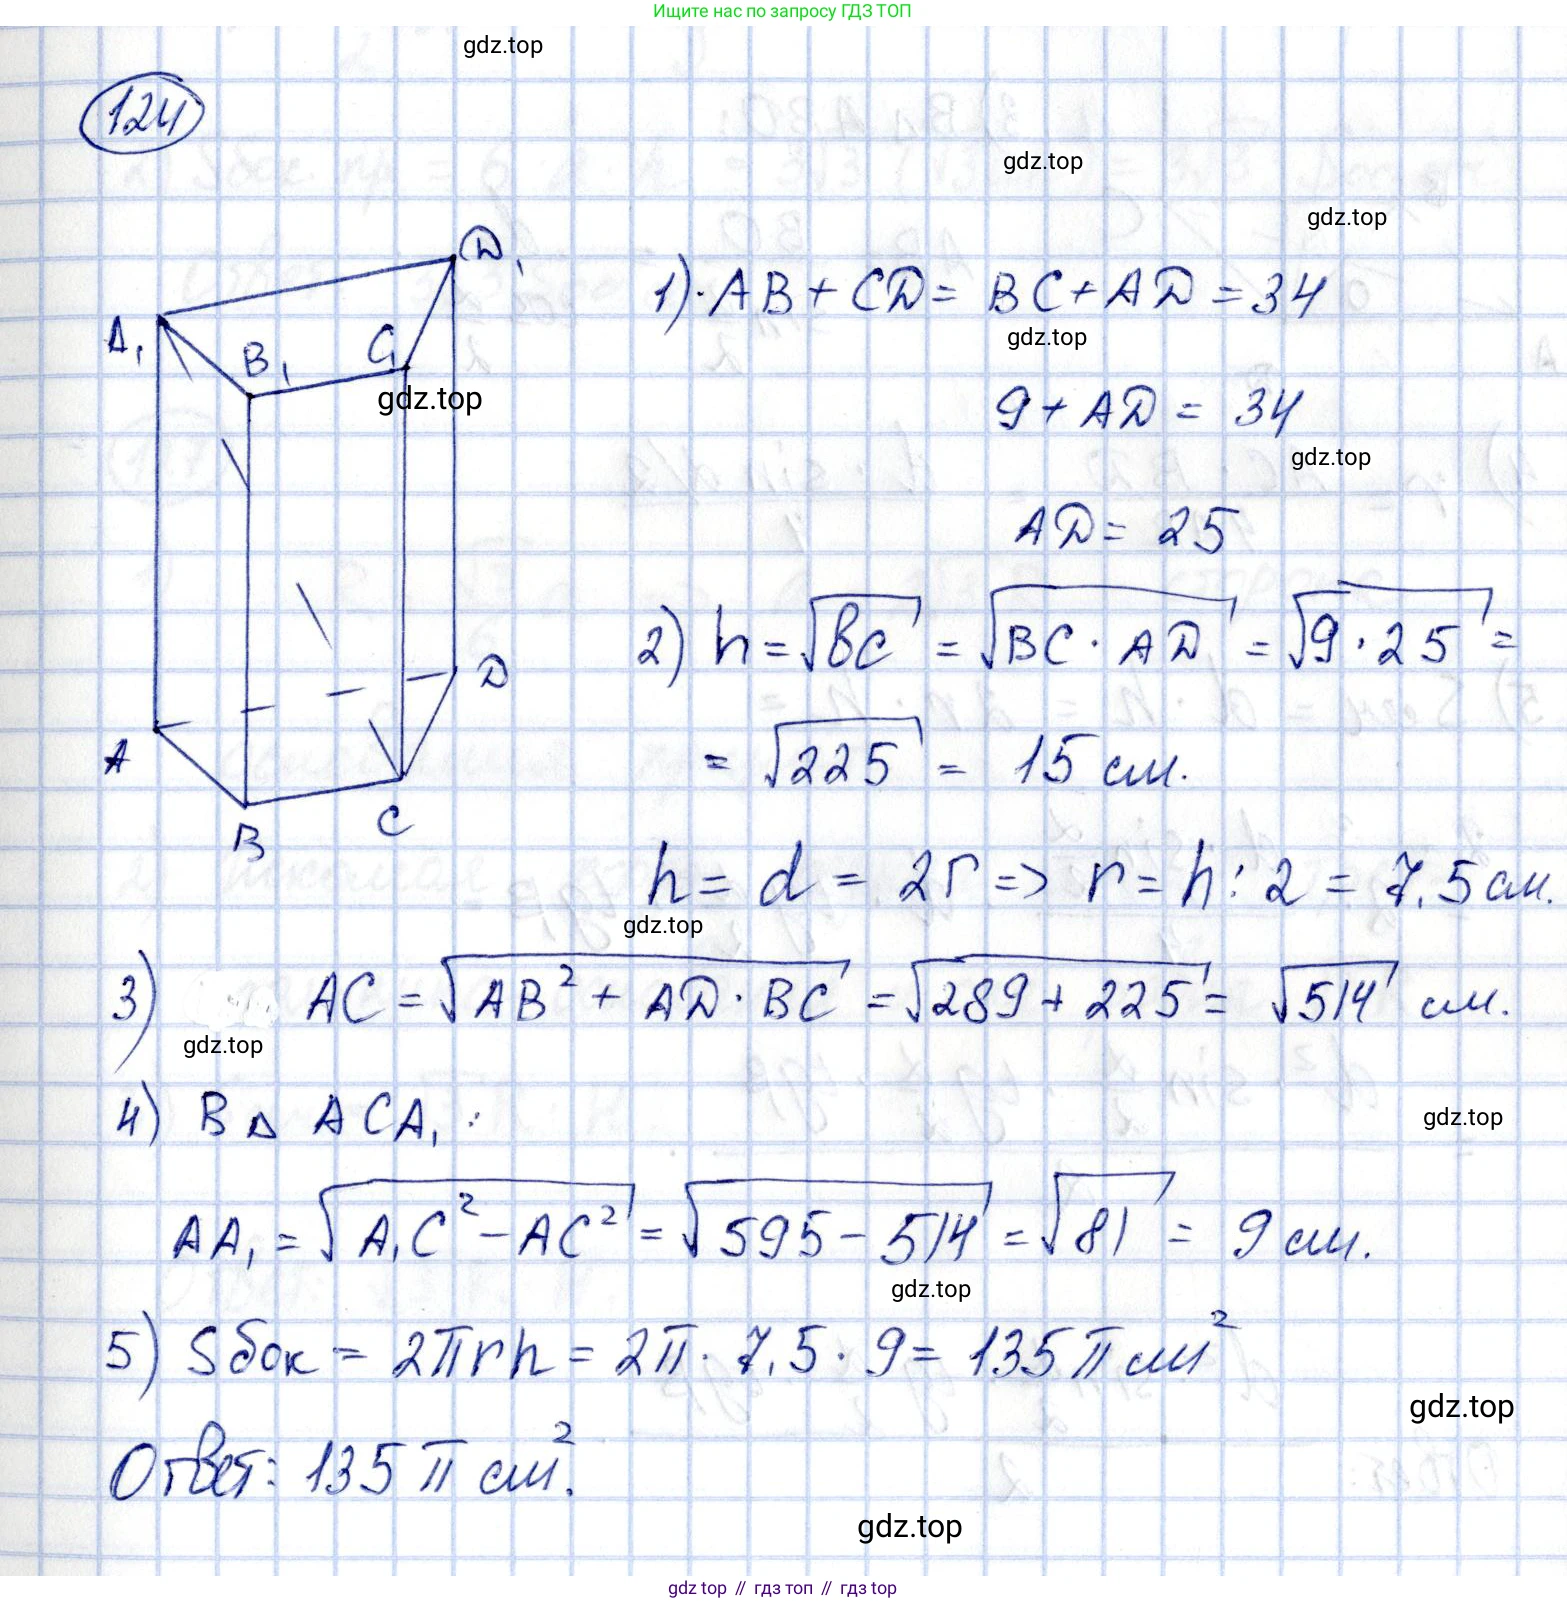 Ищите нас по запросу ГДЗ ТОП
gdz.top
124
gdz.top
gdz.top
D₁
A₁
B₁
C₁
gdz.top
A
B
C
D
1) · AB + CD = BC + AD = 34
gdz.top
9 + AD = 34
gdz.top
AD = 25
2) h = √bc = √BC · AD = √9 · 25 =
= √225 = 15 см.
h = d = 2r => r = h : 2 = 7,5 см.
gdz.top
3) AC = √AB² + AD · BC = √289 + 225 = √514 см.
gdz.top
4) В △ ACA₁ :
gdz.top
AA₁ = √A₁C² − AC² = √595 − 514 = √81 = 9 см.
gdz.top
5) Sбок = 2πrh = 2π · 7,5 · 9 = 135π см²
gdz.top
Ответ: 135 π см².
gdz.top
gdz top // гдз топ // гдз top